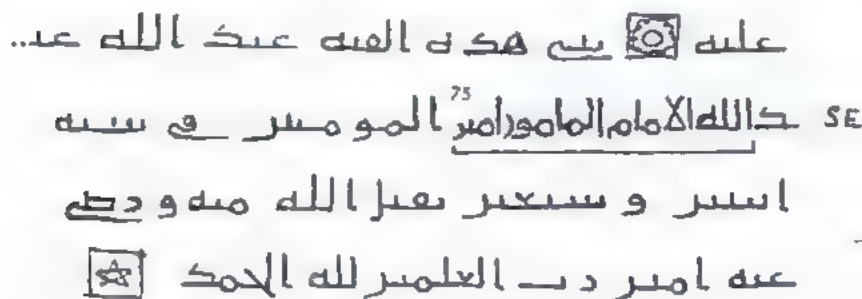 عليه بنى هذه القبة عبد الله عبـ...
د الله الامام المامون امير 75 المومنين في سنة SE
اثنين وسبعين تقبل الله منه ورضي
عنه امين رب العلمين لله الحمد